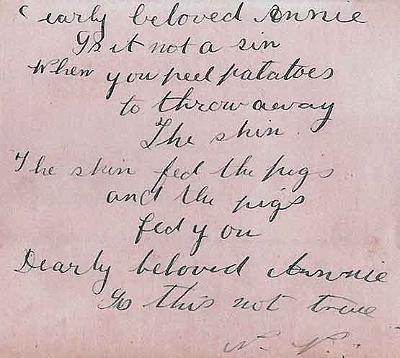 Dearly beloved Annie
Is it not a sin
When you peel patatoes
to throw away
The skin.
The skin fed the pigs
and the pigs
fed you
Dearly beloved Annie
Is this not true
N. N.